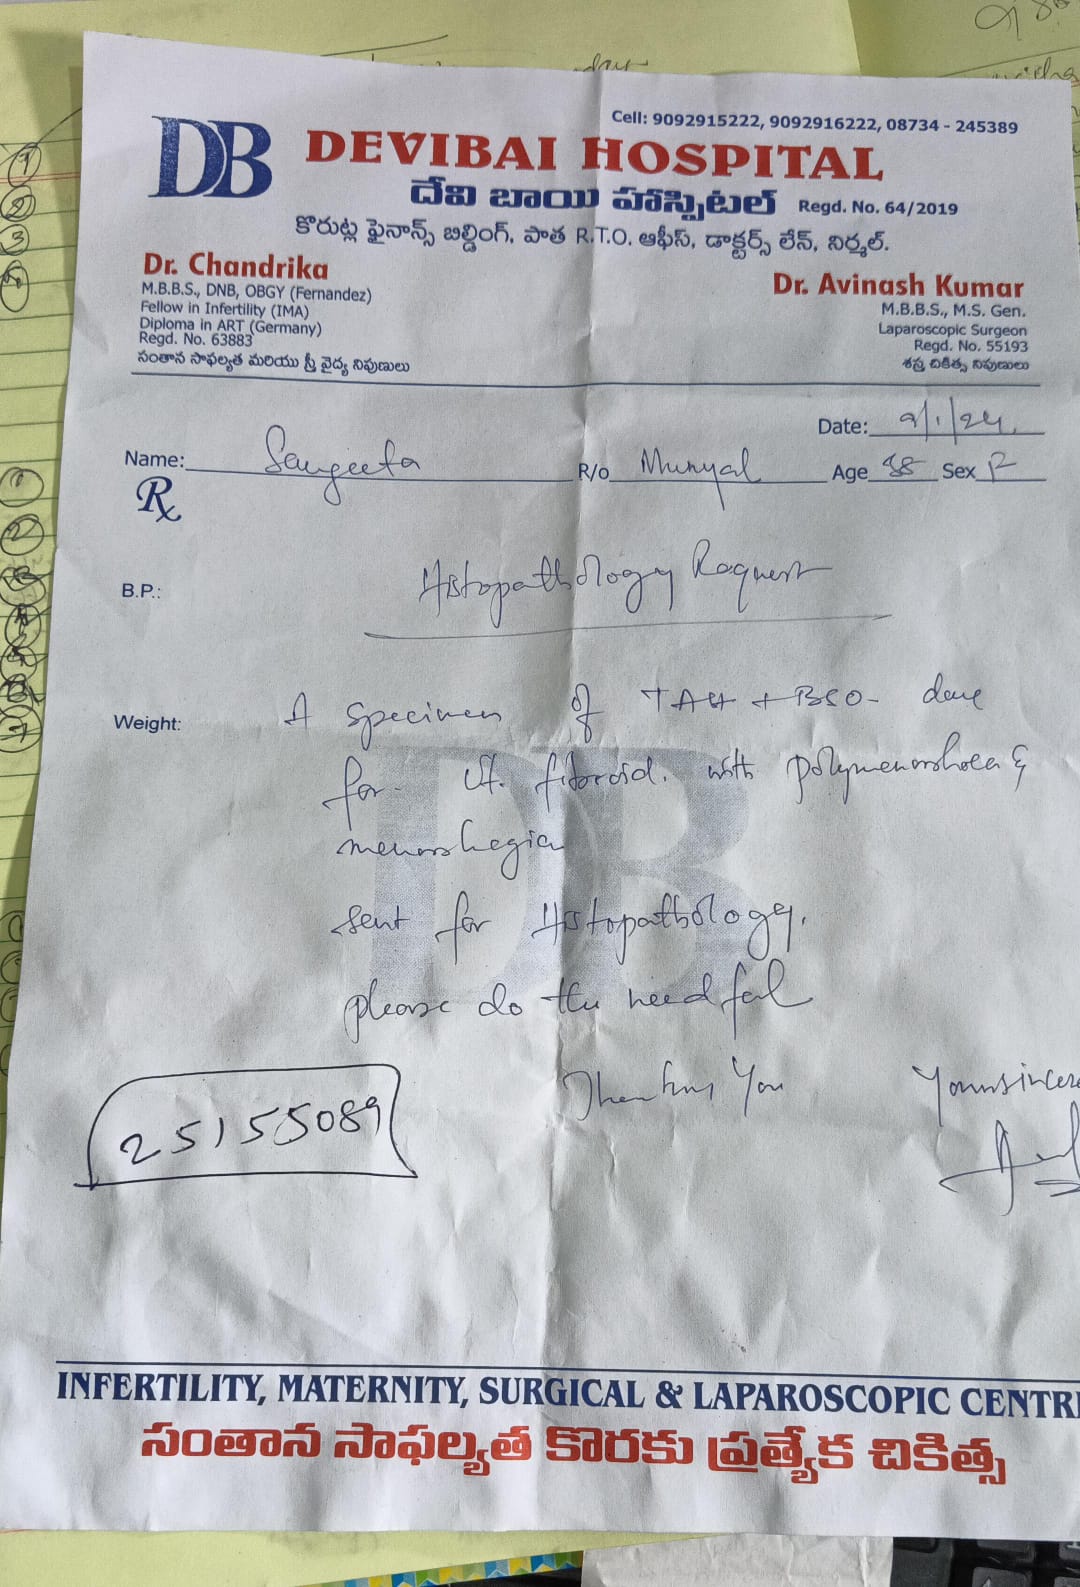 Cell: 9092915222, 9092916222, 08734 - 245389
DB DEVIBAI HOSPITAL
దేవి బాయి హాస్పిటల్ Regd. No. 64/2019
కొరుట్ల ఫైనాన్స్ బిల్డింగ్, పాత R.T.O. ఆఫీస్, డాక్టర్స్ లేన్, నిర్మల్.
Dr. Chandrika
M.B.B.S., DNB, OBGY (Fernandez)
Fellow in Infertility (IMA)
Diploma in ART (Germany)
Regd. No. 63883
సంతాన సాఫల్యత మరియు స్త్రీ వైద్య నిపుణులు
Dr. Avinash Kumar
M.B.B.S., M.S. Gen.
Laparoscopic Surgeon
Regd. No. 55193
శస్త్ర చికిత్స నిపుణులు
Date: 9/1/24.
Name: Sangeeta R/o Munyal Age 38 Sex F
Rx
B.P.: Histopathology Request
Weight: A specimen of TAH + BSO - done
for Ut. fibroid. with polymenorrhoea &
menorrhegia
sent for Histopathology.
please do the needful
Thanking You Yoursincere
25155089
INFERTILITY, MATERNITY, SURGICAL & LAPAROSCOPIC CENTR
సంతాన సాఫల్యత కొరకు ప్రత్యేక చికిత్స